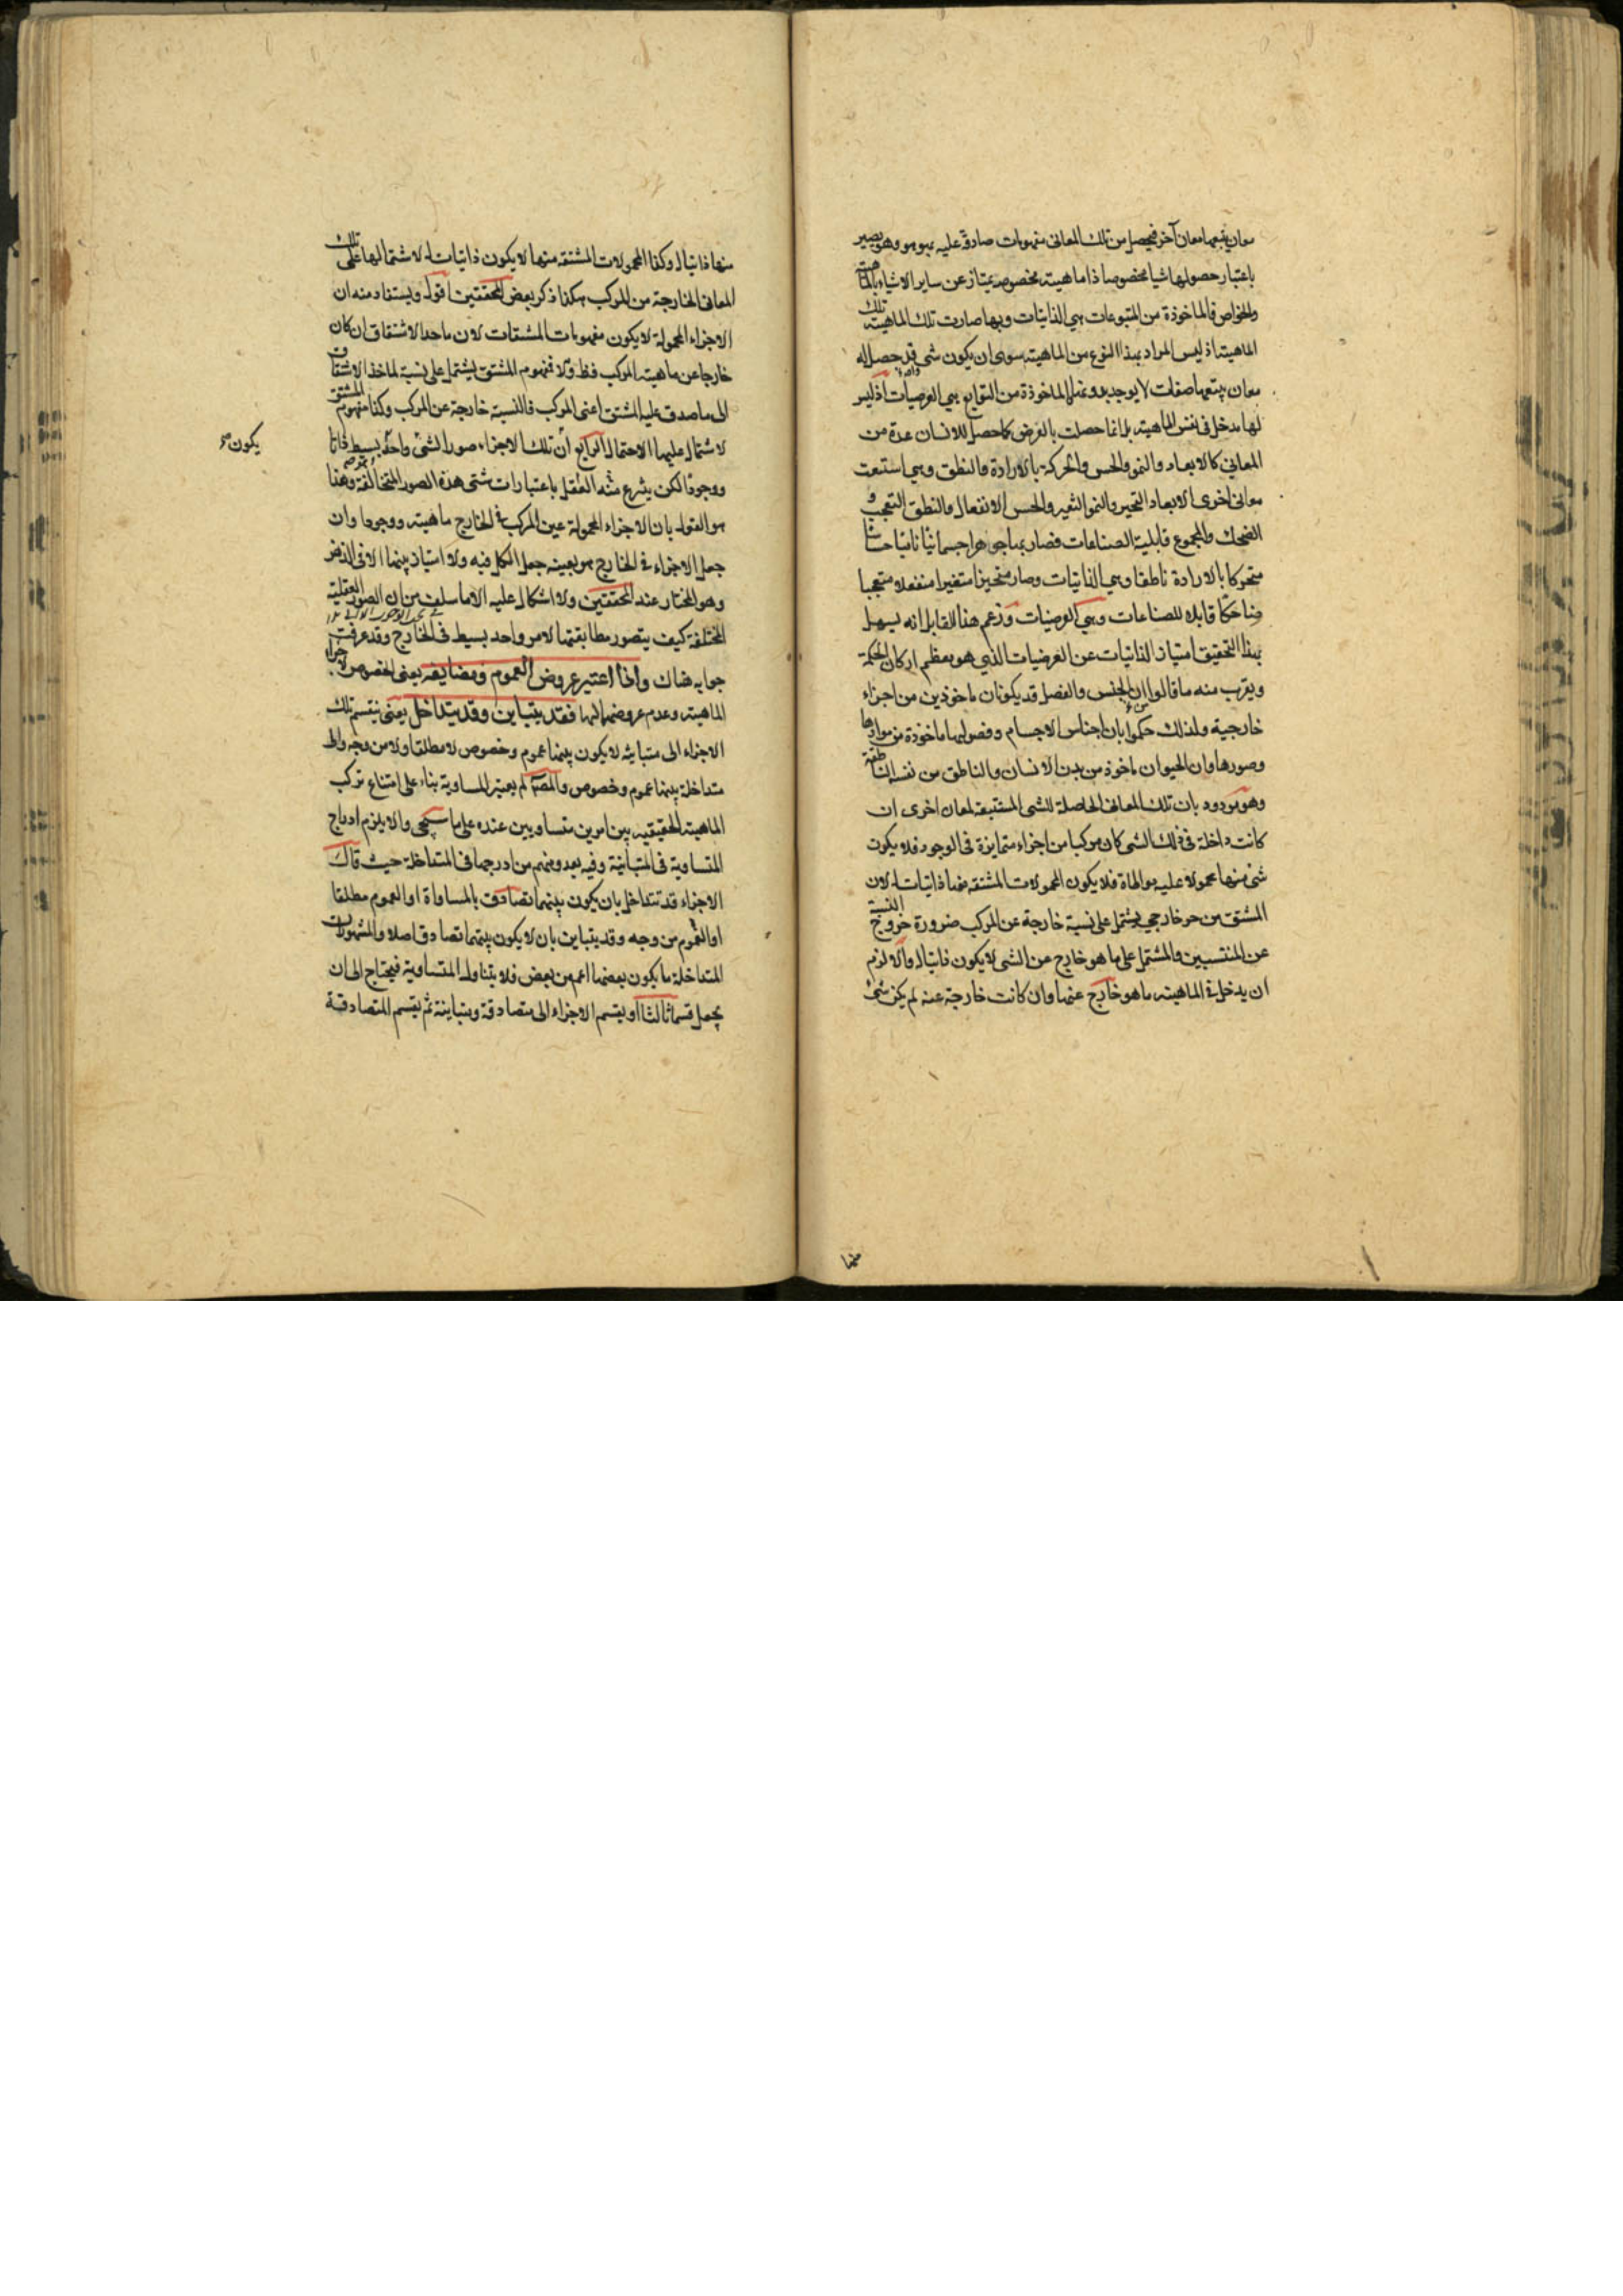 معان يتبعها معان آخر فيحصل من تلك المعانى مفهومات صادقة عليه بهو هو وهو يصير
باعتبار حصولها شيا مخصوصا ذا ماهية مخصوصة يمتاز عن ساير الاشياء بالماهية
والخواص فالماخوذة من المتبوعات هي الذاتيات وبها صارت تلك الماهية تلك
الماهية اذ ليس المراد بهذا النوع من الماهية سوى ان يكون شى قد حصل له
معان يتبعها صفات لا يوجد بدونها والماخوذة من التوابع هي العرضيات اذ ليس
لها مدخل فى نفس الماهية بل انما حصلت بالعرض كما حصل للانسان عدة من
المعاني كالابعاد والنمو والحس والحركة بالارادة والنطق وهي استتبعت
معانى اخرى الابعاد التحيز والنمو التغير والحس الانفعال والنطق التعجب و
الضحك والمجموع قابلية الصناعات فصار بها جوهرا جسمانيا ناميا حساسا
متحركا بالارادة ناطقا وهي الذاتيات وصار متحيزا متغيرا منفعلا متعجبا
ضاحكا قابلا للصناعات وهي العرضيات وزعم هذا القايل انه يسهل
بهذا التحقيق امتياز الذاتيات عن العرضيات الذي هو معظم اركان الحكمة
ويقرب منه ما قالوا ان الجنس والفصل قد يكونان ماخوذين من اجزاء
خارجية ولذلك حكموا بان اجناس الاجسام وفصولها ماخوذة من موادها
وصورها وان الحيوان ماخوذ من بدن الانسان والناطق من نفسه الناطقة
وهو مردود بان تلك المعانى الحاصلة للشى المستتبعة لمعان اخرى ان
كانت داخلة فى ذلك الشى كان مركبا من اجزاء متمايزة فى الوجود فلا يكون
شى منها محمولا عليه مواطاة فلا يكون المحمولات المشتقة منها ذاتيات له لان
المشتق من جزء خارجي يشتمل على نسبة خارجة عن المركب ضرورة خروج النسبة
عن المنتسبين والمشتمل على ما هو خارج عن الشى لا يكون ذاتيا له والا لزم
ان يدخل في الماهية ما هو خارج عنها وان كانت خارجة عنه لم يكن شئ
منها
منها ذاتيا له وكذا المحمولات المشتقة منها لا يكون ذاتيات له لاشتمالها على تلك
المعانى الخارجة من المركب هكذا ذكر بعض المحققين اقول ويستفاد منه ان
الاجزاء المحمولة لا يكون مفهومات المشتقات لان ماخذ الاشتقاق ان كان
خارجا عن ماهية المركب فظ والا فمفهوم المشتق يشتمل على نسبة لماخذ الاشتقاق
الى ما صدق عليه المشتق اعنى المركب فالنسبة خارجة عن المركب وكذا مفهوم المشتق
لاشتماله عليها الاحتمال الرابع ان تلك الاجزاء صور الشئ واحد بسيط ذاتا
يكون
ووجودا لكن ينتزع منه العقل باعتبارات شتى هذه الصور المتخالفة وهذا
هو القول بان الاجزاء المحمولة عين المركب فى الخارج ماهية ووجودا وان
جعل الاجزاء فى الخارج هو بعينه جعل الكل فيه ولا امتياز بينها الا فى الذهن
وهو المختار عند المحققين ولا اشكال عليه الا ما سلف من ان الصور العقلية
المختلفة كيف يتصور مطابقتها لامر واحد بسيط فى الخارج وقد عرفت
جوابه هناك واذا اعتبر عروض العموم ومضايفه يعنى الخصوص لاجزاء
الماهية وعدم عروضهما لها فقد يتباين وقد يتداخل يعنى ينقسم تلك
الاجزاء الى متباينة لا يكون بينها عموم وخصوص لا مطلقا ولا من وجه والى
متداخلة بينها عموم وخصوص والمصنف لم يعتبر المساوية بناء على امتناع تركب
الماهية الحقيقية بين امرين متساويين عنده على ما سيجى والا يلزم ادراج
المتساوية فى المتباينة وفيه بعد ومنهم من ادرجها فى المتداخلة حيث قال
الاجزاء قد تتداخل بان يكون بينهما تصادق بالمساواة او العموم مطلقا
او العموم من وجه وقد يتباين بان لا يكون بينهما تصادق اصلا والمشهور ان
المتداخلة ما يكون بعضها اعم من بعض فلا يتناول المتساوية فيحتاج الى ان
يجعل قسما ثالثا او يقسم الاجزاء الى متصادقة ومتباينة ثم يقسم المتصادقة